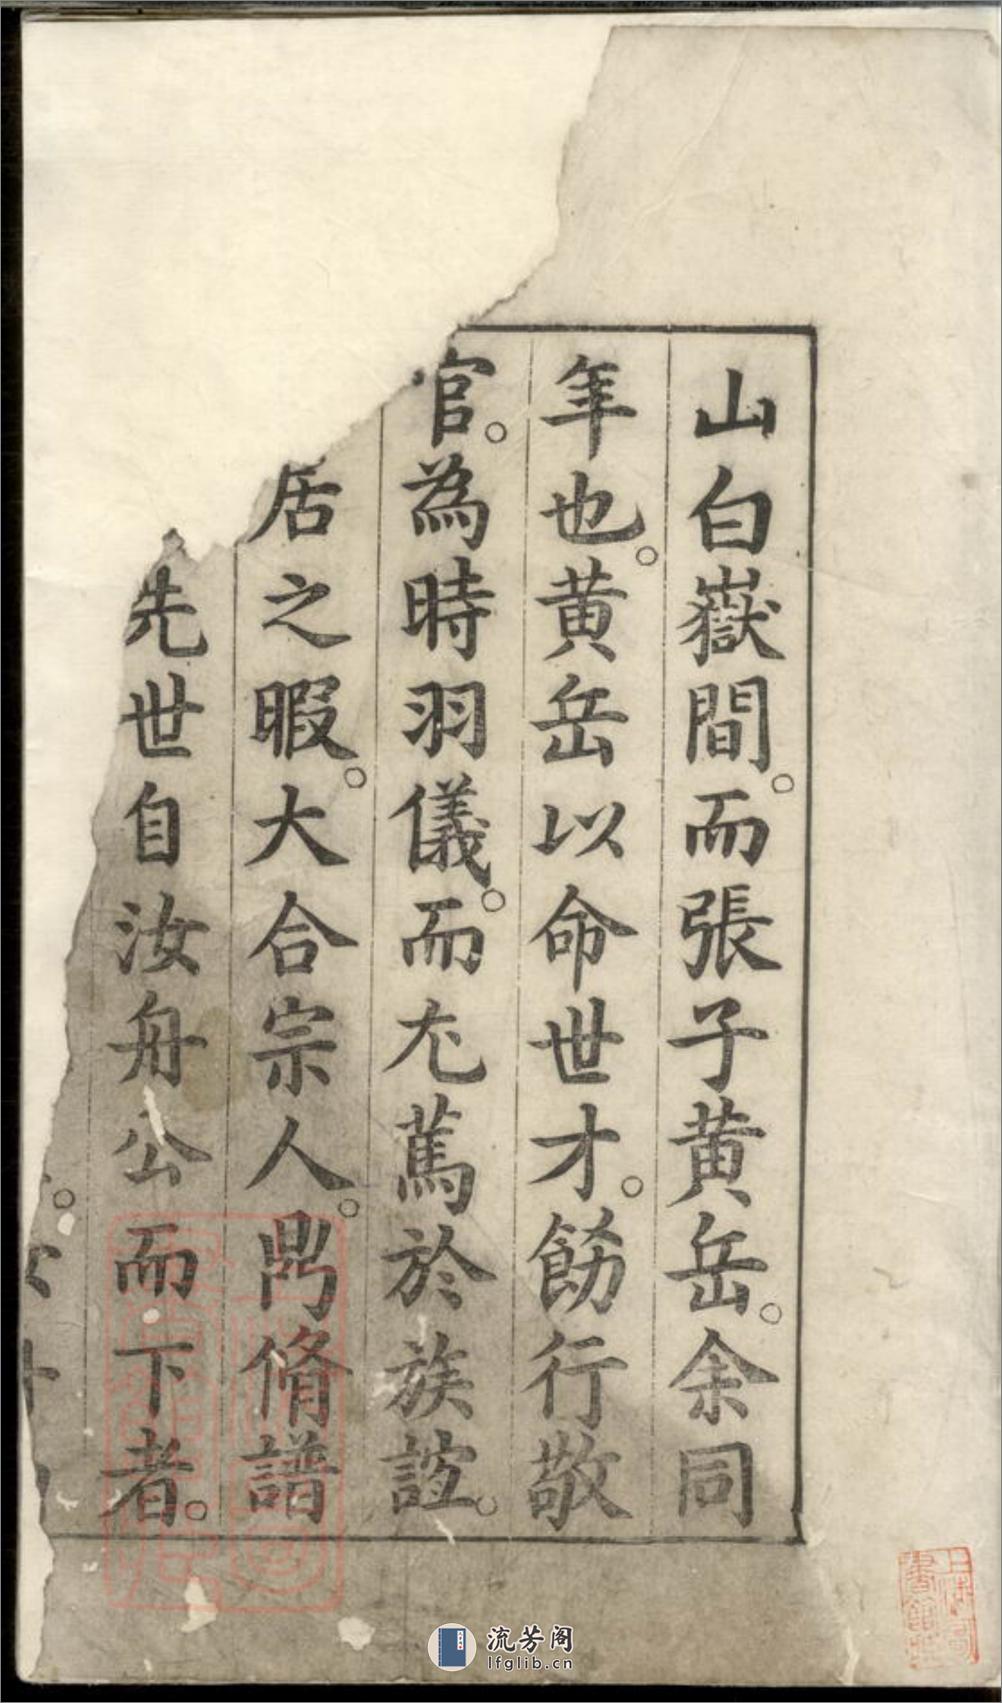 山白嶽間。而張子黄岳。余同
年也。黄岳以命世才。飭行敬
官。為時羽儀。而尤篤於族誼。
居之暇。大合宗人。門脩譜
先世自汝舟公而下者。
流芳阁
lfglib.cn